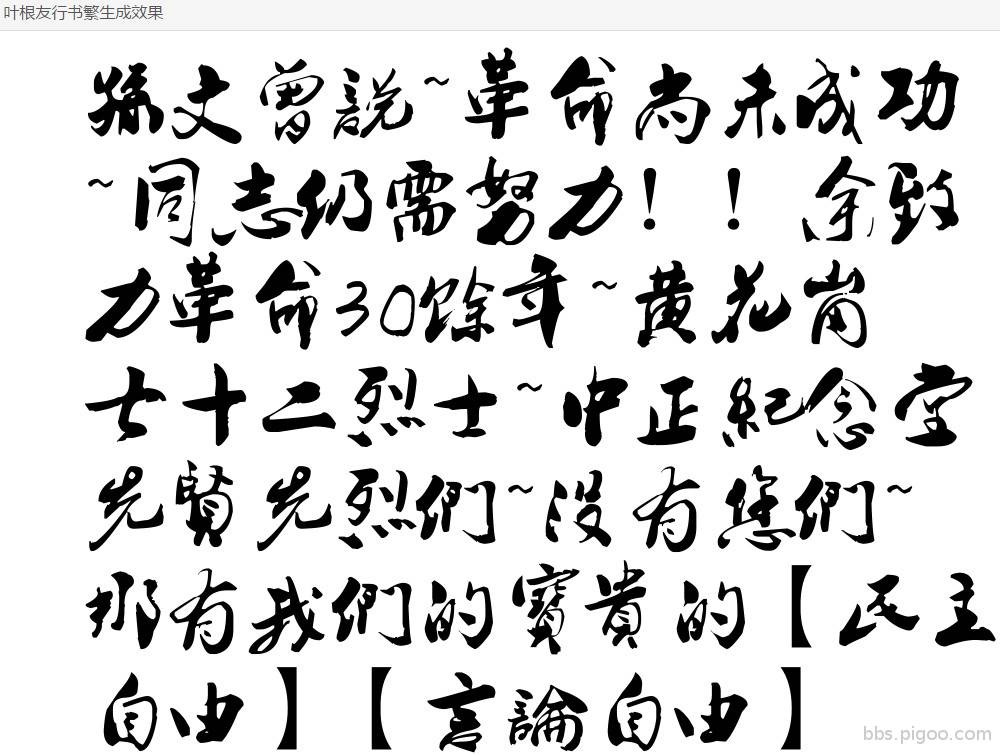 叶根友行书繁生成效果
孫文曾説~革命尚未成功
~同志仍需努力！！余致
力革命30餘年~黃花崗
七十二烈士~中正紀念堂
先賢先烈們~沒有您們~
那有我們的寶貴的【民主
自由】【言論自由】
bbs.pigoo.com